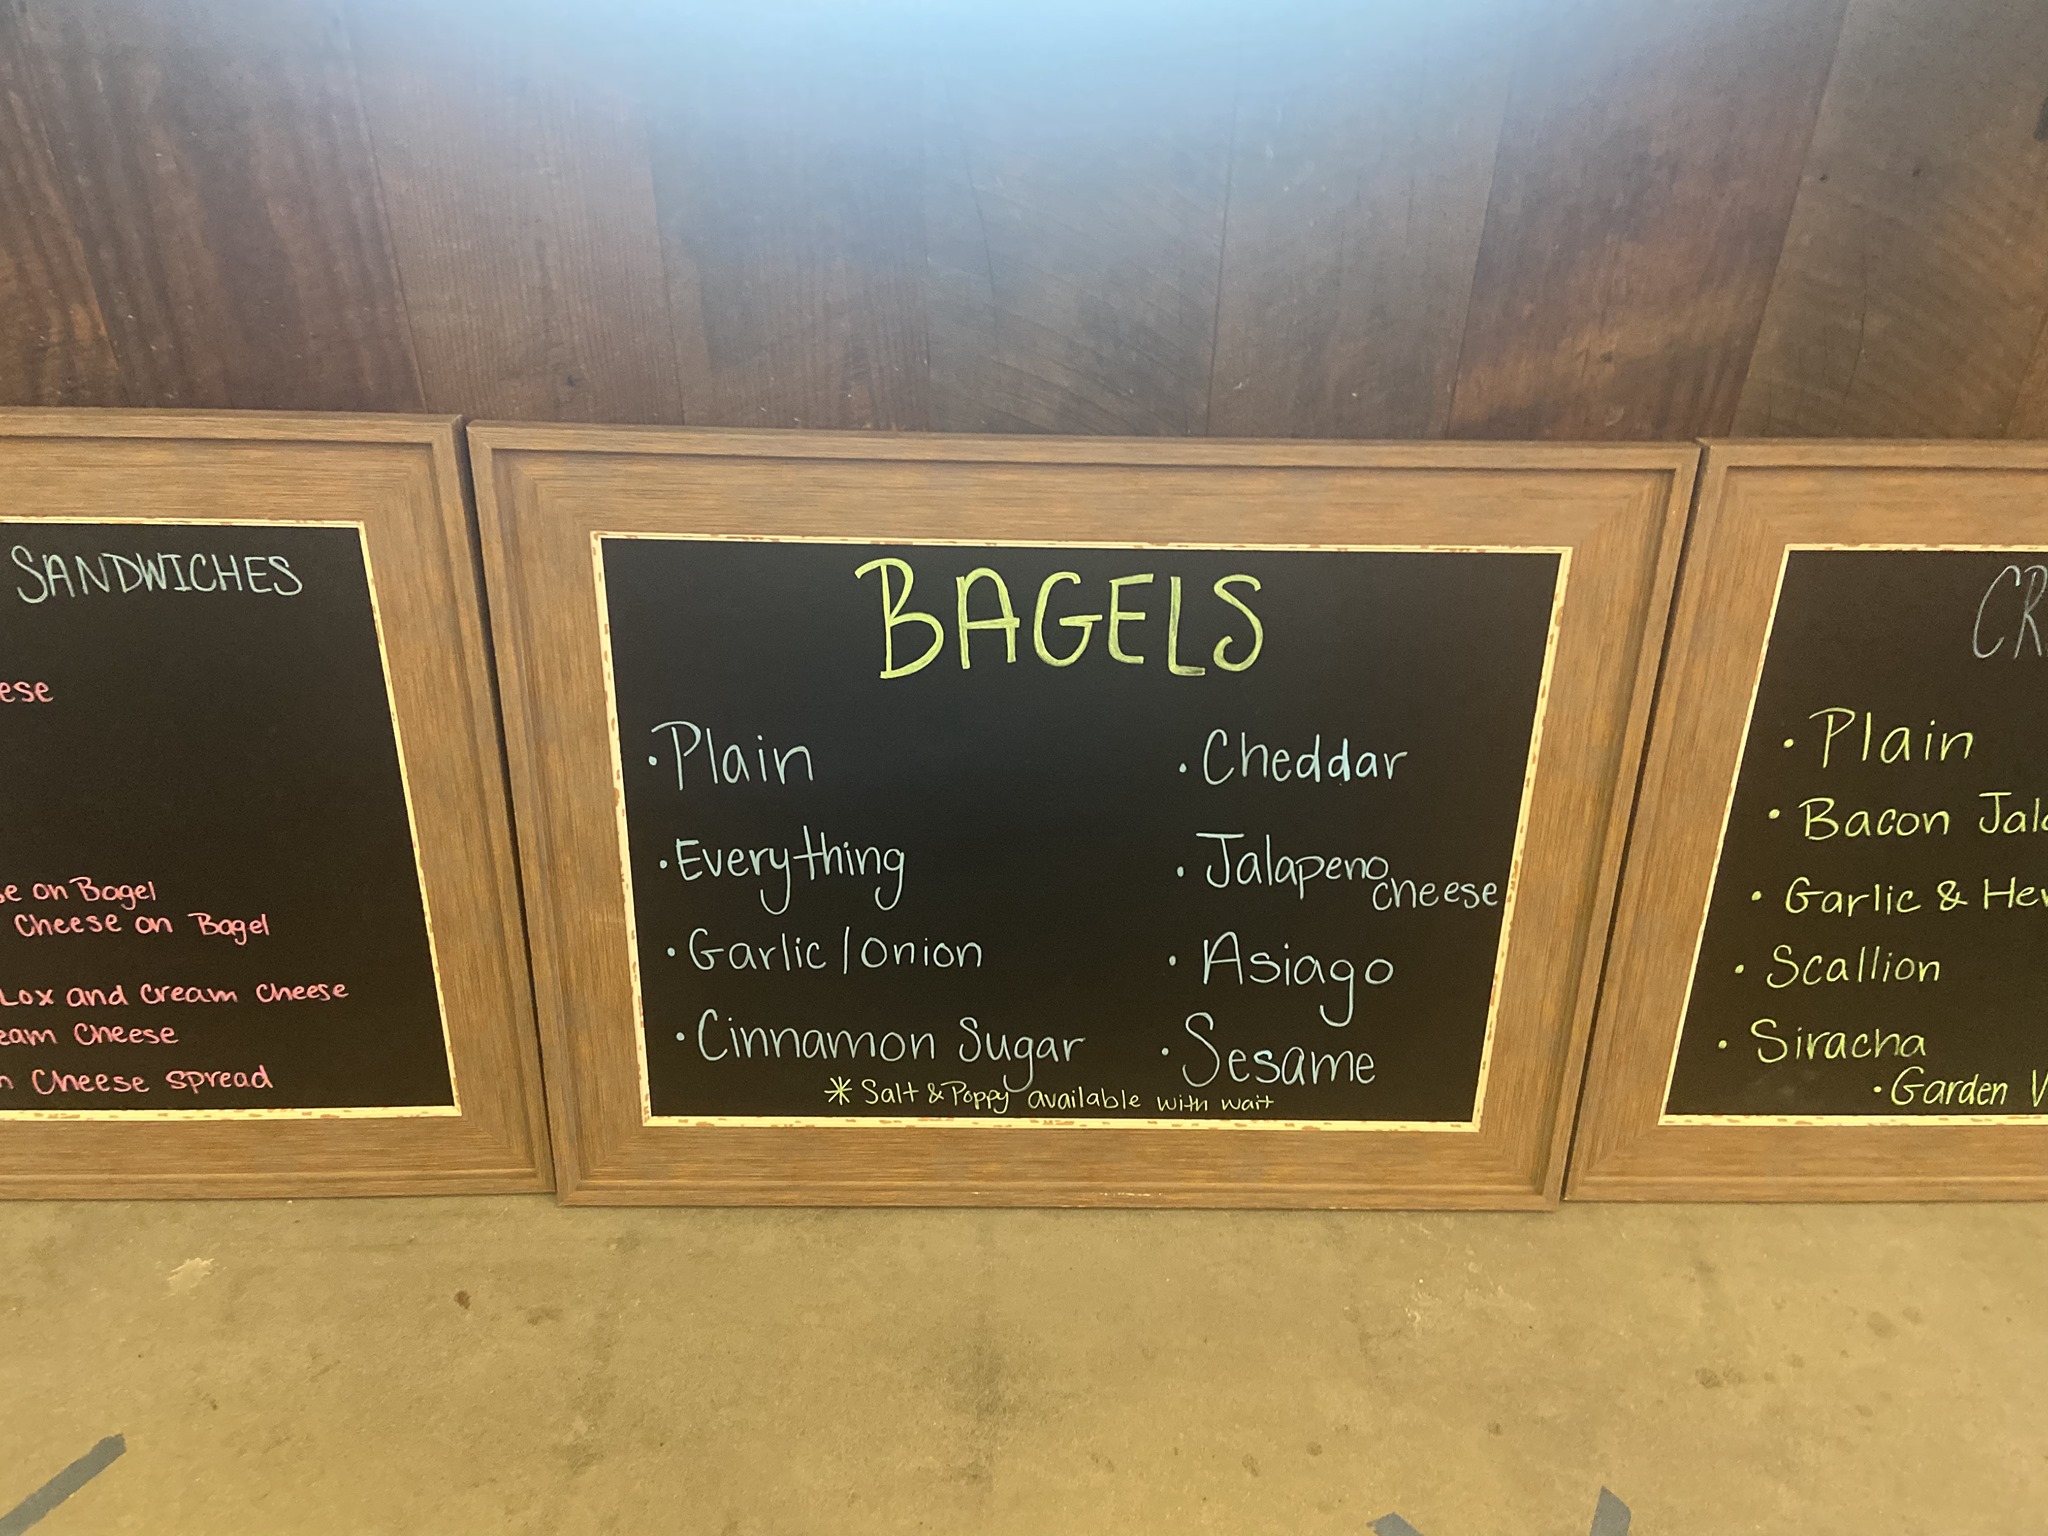 SANDWICHES
on Bagel
Cheese on Bagel
Lox and Cream Cheese
Cheese
Cheese spread
BAGELS
• Plain
• Everything
• Garlic/Onion
• Cinnamon Sugar
• Cheddar
• Jalapeno
cheese
• Asiago
• Sesame
* Salt & Poppy available with wait
• Plain
• Bacon
• Garlic &
• Scallion
• Siracha
• Garden